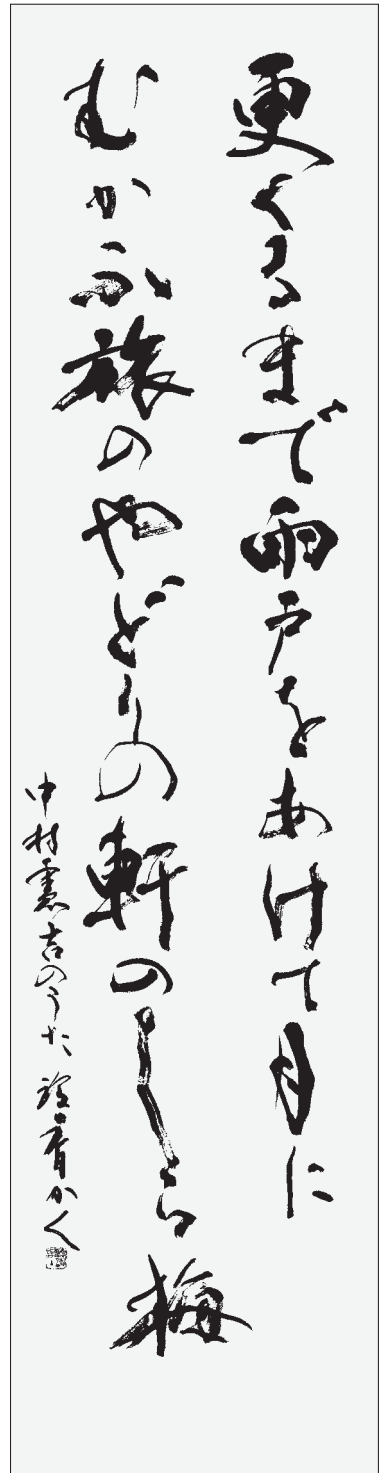 更くるまで雨戸をあけて月に
むかふ旅のやどりの軒のしら梅
中村憲吉のうた かく